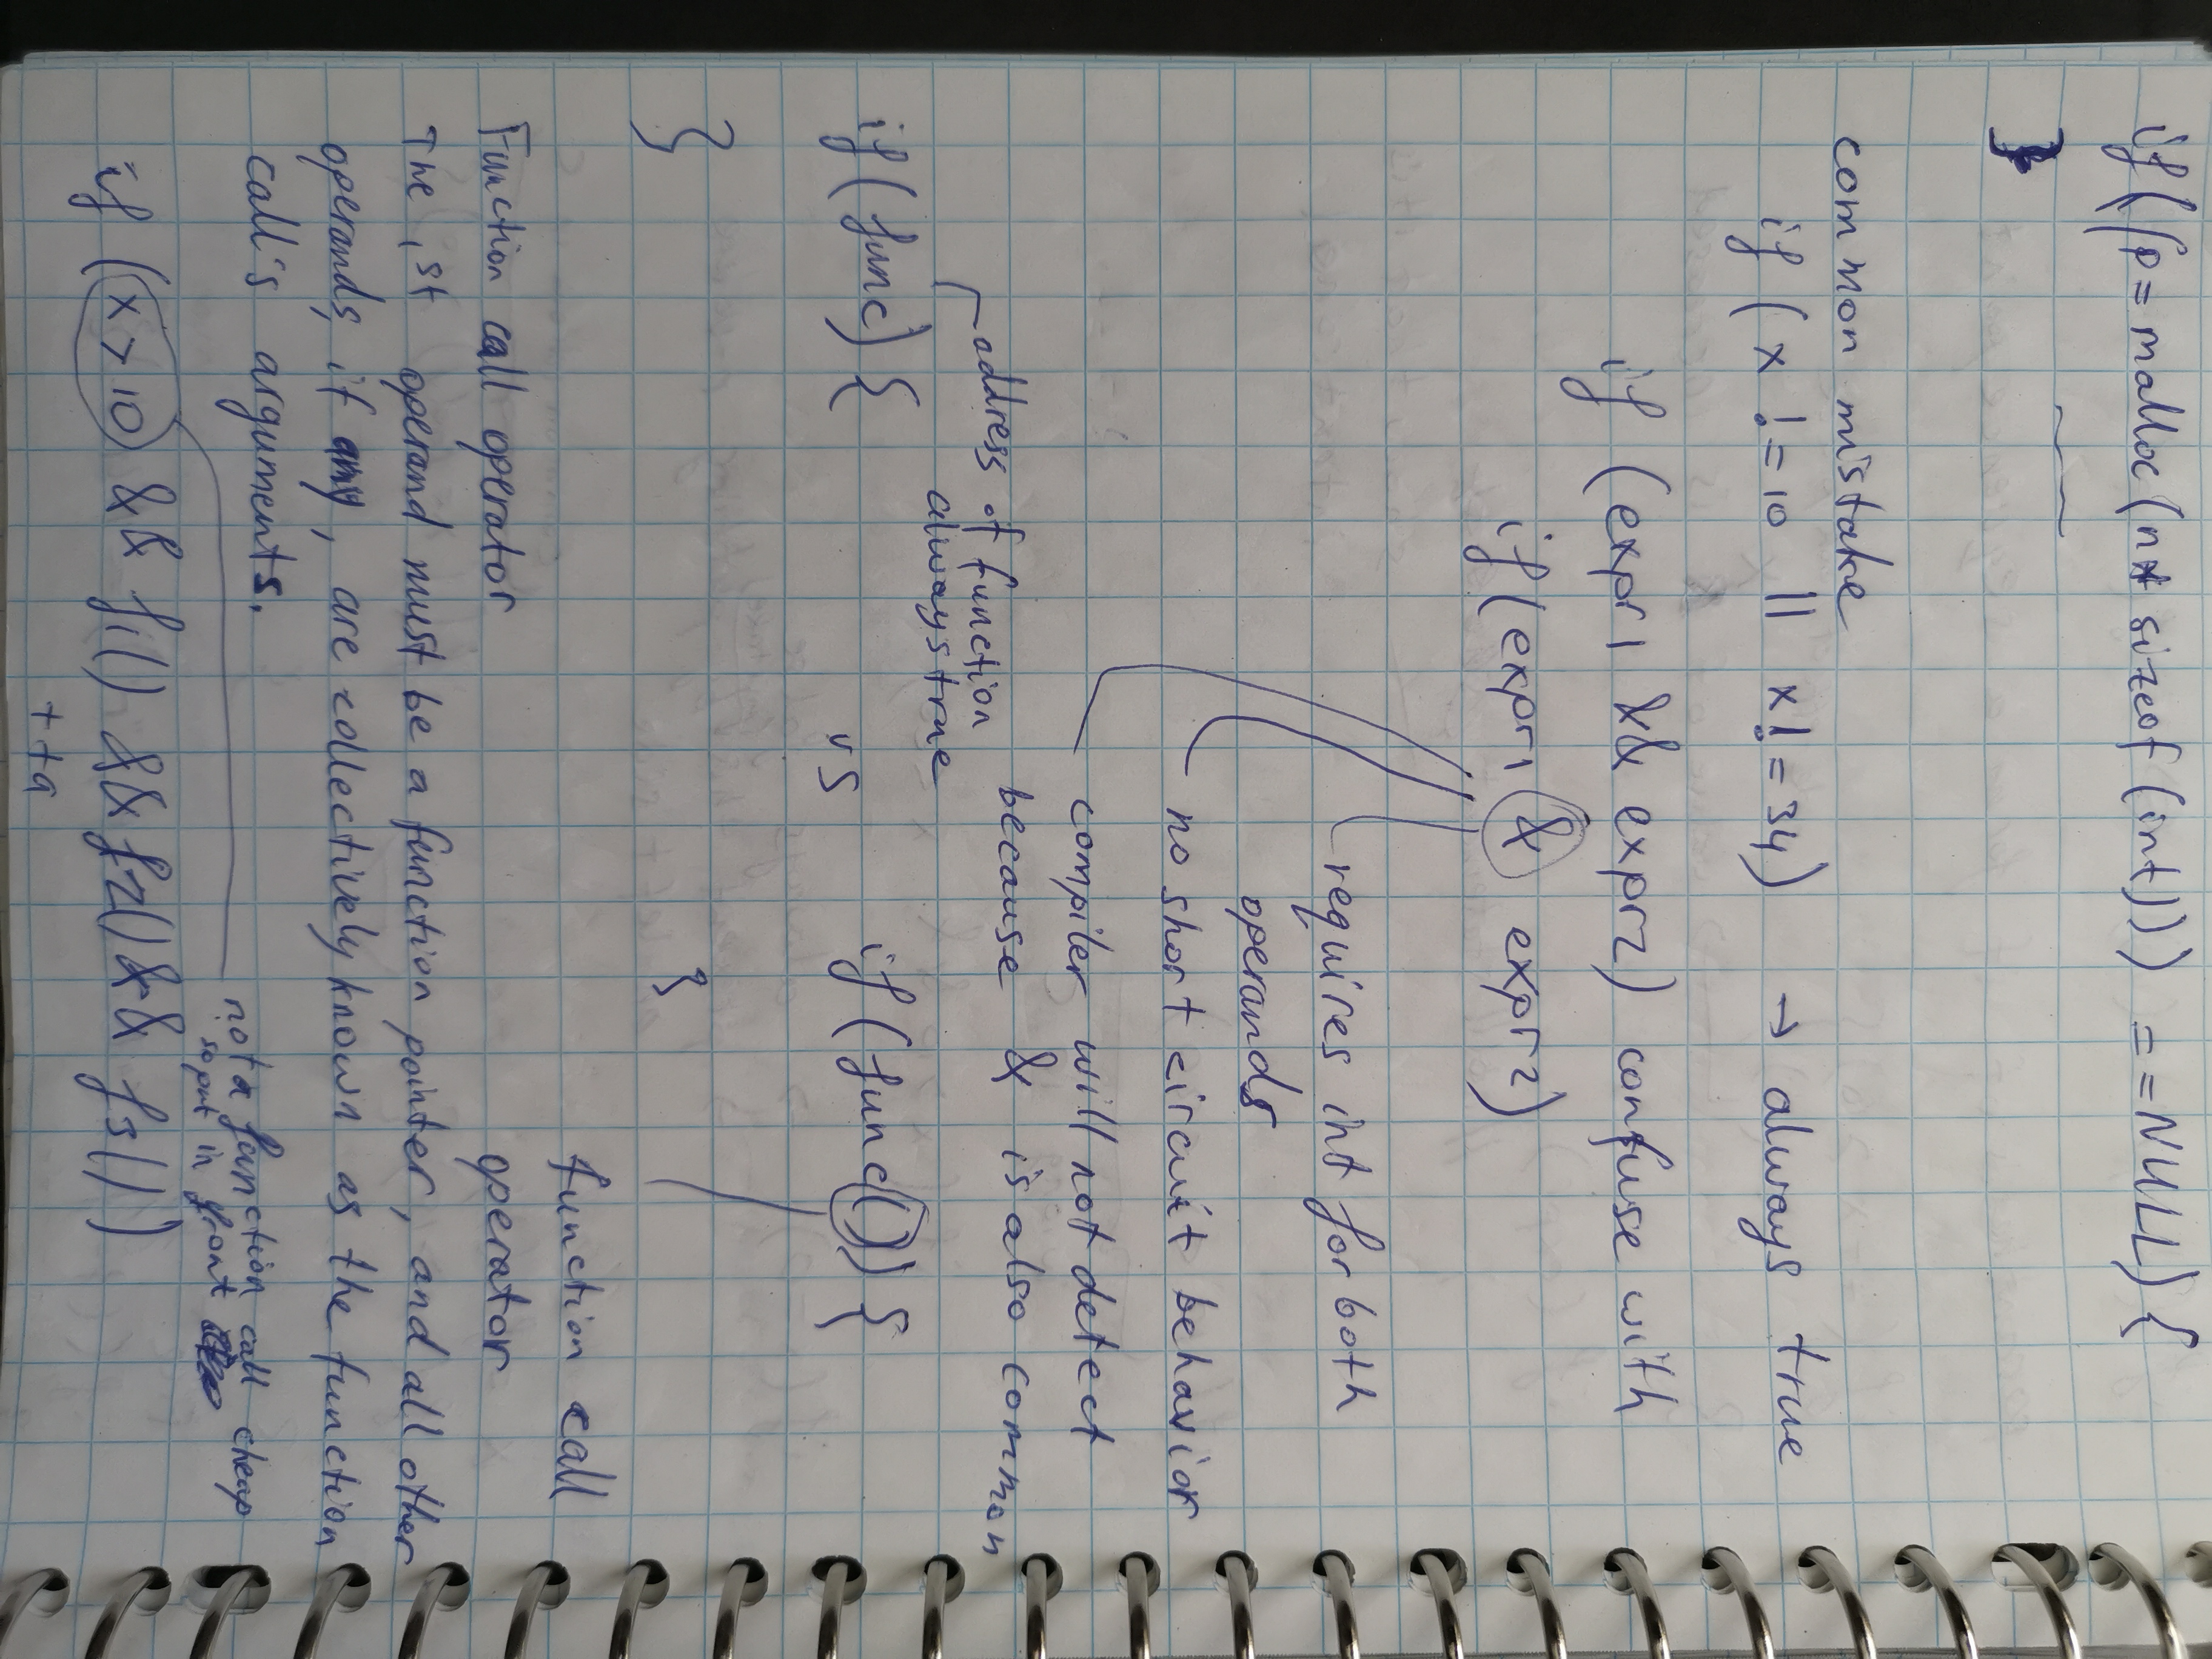 if((p = malloc(n* sizeof(int))) == NULL) {
}
common mistake
if (x != 10 || x != 34) → always true
if (expr1 && expr2) confuse with
if(expr1 & expr2)
requires int for both
operands
no short circuit behavior
compiler will not detect
because & is also common
address of function
always true
if(func) { vs if(func()) {
} }
function call
operator
Function call operator
The 1st operand must be a function pointer, and all other
operands, if any, are collectively known as the function
call's arguments.
not a function call cheap
so put in front
if (x > 10 && f1() && f2() && f3())
++a